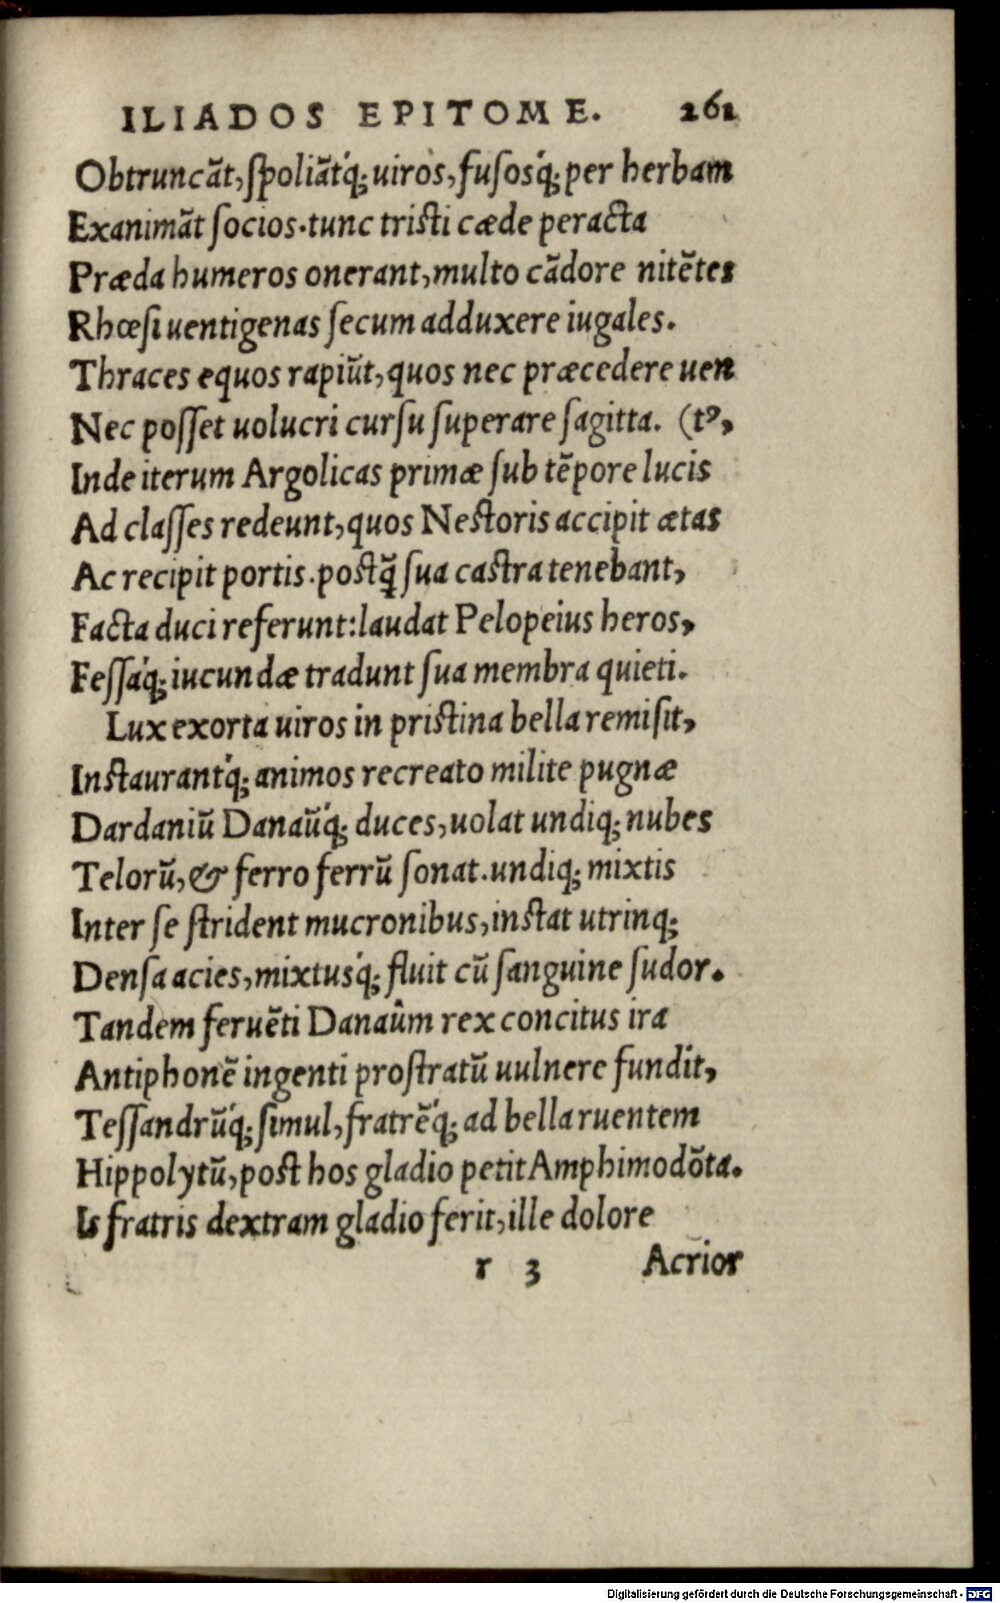 ILIADOS EPITOME. 261
Obtruncãt, ſpoliãtq́; uiros, fuſosq́; per herbam
Exanimãt ſocios. tunc triſti cæde peracta
Præda humeros onerant, multo cãdore nitẽtes
Rhœſi uentigenas ſecum adduxere iugales.
Thraces equos rapiũt, quos nec præcedere uen
Nec poſſet uolucri curſu ſuperare ſagitta. (tꝰ,
Inde iterum Argolicas primæ ſub tẽpore lucis
Ad claſſes redeunt, quos Neſtoris accipit ætas
Ac recipit portis. poſtq̃ ſua caſtra tenebant,
Facta duci referunt: laudat Pelopeius heros,
Feſſaq́; iucundæ tradunt ſua membra quieti.
Lux exorta uiros in priſtina bella remiſit,
Inſtaurantq́; animos recreato milite pugnæ
Dardaniũ Danaũq́; duces, uolat undiq; nubes
Telorũ, & ferro ferrũ ſonat. undiq; mixtis
Inter ſe ſtrident mucronibus, inſtat utrinq;
Denſa acies, mixtusq́; fluit cũ ſanguine ſudor.
Tandem feruẽti Danaûm rex concitus ira
Antiphonẽ ingenti proſtratũ uulnere fundit,
Teſſandrũq́; ſimul, fratrẽq́; ad bella ruentem
Hippolytũ, poſt hos gladio petit Amphimodõta.
Is fratris dextram gladio ferit, ille dolore
r 3 Acrior
Digitalisierung gefördert durch die Deutsche Forschungsgemeinschaft - DFG